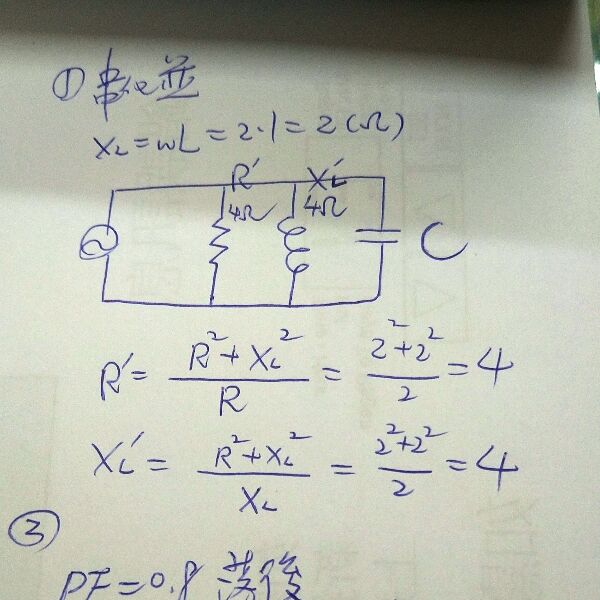 ① 串化並
XL = ωL = 2·1 = 2(Ω)
R' XL'
4Ω 4Ω
C
R' = (R² + XL²) / R = (2² + 2²) / 2 = 4
XL' = (R² + XL²) / XL = (2² + 2²) / 2 = 4
③
PF = 0.8 落後